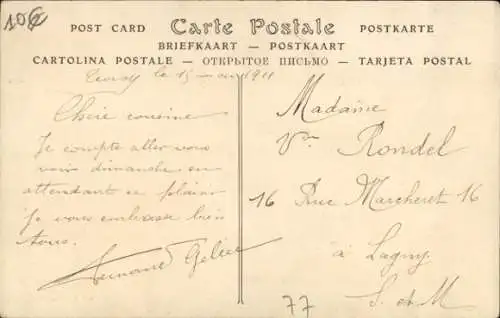 10€
POST CARD Carte Postale POSTKARTE
BRIEFKAART — POSTKAART
CARTOLINA POSTALE — ОТКРЫТОЕ ПИСЬМО — TARJETA POSTAL
le 15 1911
Chère cousine
Je compte aller vous
voir dimanche en
attendant ce plaisir
je vous embrasse bien
tous.
Fernand
Madame
Vve Rondel
16 Rue Marcheret 16
à Lagny
S. et M
77